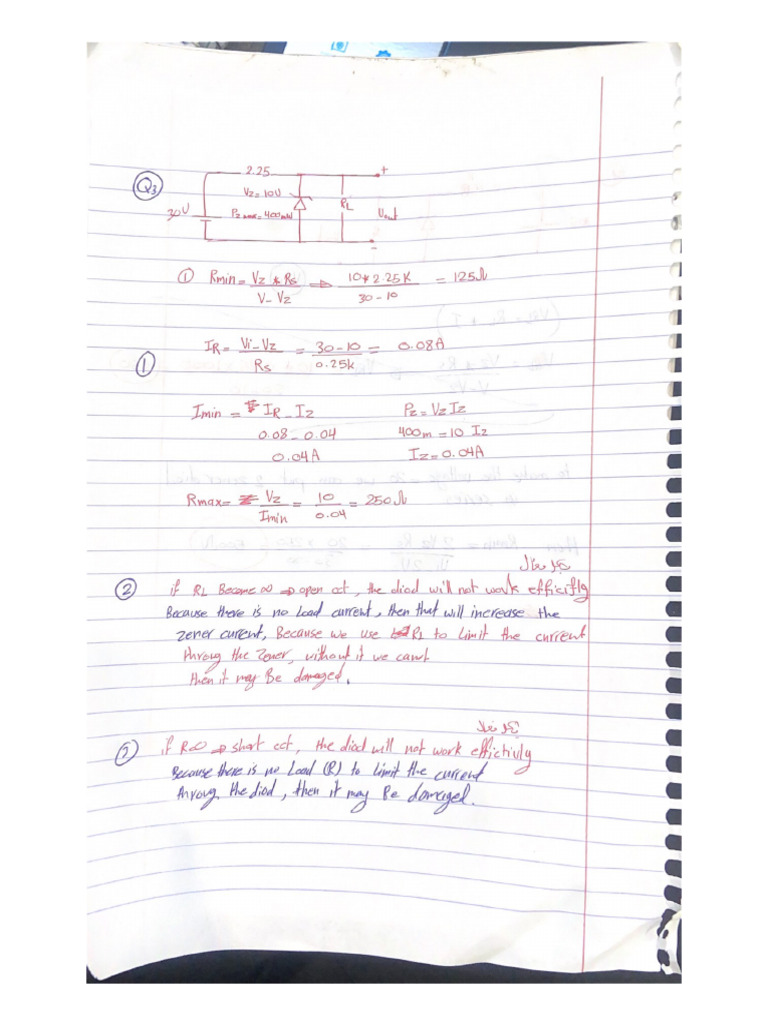 Q3
2.25
+
Vz = 10V
30V
Pz max = 400mW
RL
Vout
-
① Rmin = Vz * Rs / V - Vz ⇒ 10 * 2.25K / 30 - 10 = 125Ω
① IR = Vi - Vz / Rs = 30 - 10 / 0.25k = 0.08A
Imin = IR - Iz
Pz = Vz Iz
0.08 - 0.04
400m = 10 Iz
0.04A
Iz = 0.04A
Rmax = Vz / Imin = 10 / 0.04 = 250Ω
② if RL Become ∞ ⇒ open cct, the diod will not work efficiftly
Because there is no Load current, then that will increase the
zener current, Because we use RL to Limit the current
throug the zener, without it we cannt
then it may Be damaged.
② if R∞ ⇒ short cct, the diod will not work effictivly
Because there is no Load (R) to Limit the current
throug the diod, then it may Be damaged.